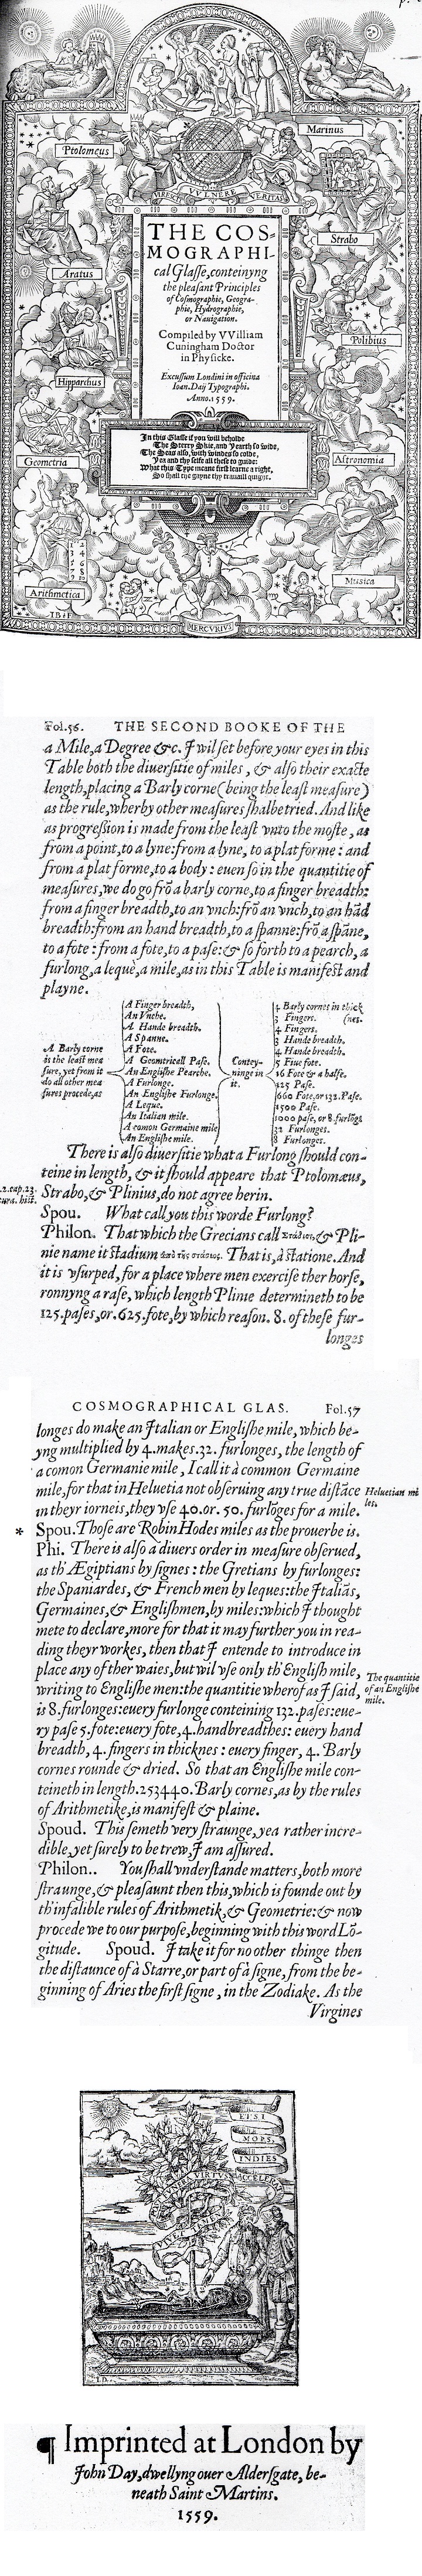 Ptolomeus
Marinus
VIRES VVLNERE VERITAS
Strabo
Aratus
Polibius
Hipparchus
Geometria
Astronomia
Arithmetica
Musica
I B F
MERCVRIVS
THE COS-
MOGRAPHI-
cal Glasse, conteinyng
the pleasant Principles
of Cosmographie, Geogra-
phie, Hydrographie,
or Nauigation.
Compiled by VVilliam
Cuningham Doctor
in Physicke.
Excussum Londini in officina
Ioan. Daij Typographi.
Anno. 1559.
In this Glasse if you will beholde
The Sterry Skie, and Yearth so wide,
The Seas also, with windes so colde,
Yea and thy selfe all these to guide:
What this Type meane first learne a right,
So shall the gayne thy trauaill quight.
Fol.56. THE SECOND BOOKE OF THE
a Mile, a Degree &c. I wil set before your eyes in this
Table both the diuersitie of miles, & also their exacte
length, placing a Barly corne (being the least measure)
as the rule, wherby other measures shalbe tried. And like
as progression is made from the least vnto the moste, as
from a point, to a lyne: from a lyne, to a plat forme: and
from a plat forme, to a body: euen so in the quantitie of
measures, we do go frō a barly corne, to a finger breadth:
from a finger breadth, to an ynch: frō an ynch, to an hād
breadth: from an hand breadth, to a spanne: frō a spāne,
to a fote: from a fote, to a pase: & so forth to a pearch, a
furlong, a leque, a mile, as in this Table is manifest and
playne.
A Barly corne
is the least mea
sure, yet from it
do all other mea
sures procede, as
A Finger breadth,
An Ynche.
A Hande breadth.
A Spanne.
A Fote.
A Geometricall Pase.
An Englishe Pearche.
A Furlonge.
An Englishe Furlonge.
A Leque.
An Italian mile.
A comon Germaine mile
An Englishe mile.
Contey-
ninge in
it.
4 Barly cornes in thick
(nes.
3 Fingers.
4 Fingers.
3 Hande breadth.
4 Hande breadth.
5 Fiue fote.
16 Fote & a halfe.
125 Pase.
660 Fote, or 132. Pase.
1500 Pase.
1000 pase, or 8. furlōgs
32 Furlonges.
8 Furlonges.
There is also diuersitie what a Furlong should con-
teine in length, & it should appeare that Ptolomæus,
Strabo, & Plinius, do not agree herin.
2. cap. 23.
hist.
Spou. What call you this worde Furlong?
Philon. That which the Grecians call Στάδιος, & Pli-
nie name it Stadium ἀπὸ τῆς στάσεως. That is, à Statione. And
it is vsurped, for a place where men exercise ther horse,
ronnyng a rase, which length Plinie determineth to be
125. pases, or. 625. fote, by which reason. 8. of these fur-
longes
COSMOGRAPHICAL GLAS. Fol.57
longes do make an Italian or Englishe mile, which be-
yng multiplied by 4. makes. 32. furlonges, the length of
a comon Germanie mile, I call it à common Germaine
mile, for that in Heluetia not obseruing any true distāce
in theyr iorneis, they vse 40. or. 50. furlōges for a mile.
Heluetian mi
les.
* Spou. Those are Robin Hodes miles as the prouerbe is.
Phi. There is also à diuers order in measure obserued,
as th' Ægiptians by signes: the Gretians by furlonges:
the Spaniardes, & French men by leques: the Italiās,
Germaines, & Englishmen, by miles: which I thought
mete to declare, more for that it may further you in rea-
ding theyr workes, then that I entende to introduce in
place any of ther waies, but wil vse only th' English mile,
writing to Englishe men: the quantitie wherof as I said,
is 8. furlonges: euery furlonge conteining 132. pases: eue-
ry pase 5. fote: euery fote, 4. handbreadthes: euery hand
breadth, 4. fingers in thicknes: euery finger, 4. Barly
cornes rounde & dried. So that an Englishe mile con-
teineth in length. 253440. Barly cornes, as by the rules
of Arithmetike, is manifest & plaine.
The quantitie
of an Englishe
mile.
Spoud. This semeth very straunge, yea rather incre-
dible, yet surely to be trew, I am assured.
Philon.. You shall vnderstande matters, both more
straunge, & pleasaunt then this, which is founde out by
th'infalible rules of Arithmetik, & Geometrie: & now
procede we to our purpose, beginning with this word Lō-
gitude. Spoud. I take it for no other thinge then
the distaunce of à Starre, or part of à signe, from the be-
ginning of Aries the first signe, in the Zodiake. As the
Virgines
ETSI
MORS
INDIES
ACCELERAT
VIRTVS
I.D.
¶ Imprinted at London by
John Day, dwellyng ouer Aldersgate, be-
neath Saint Martins.
1559.